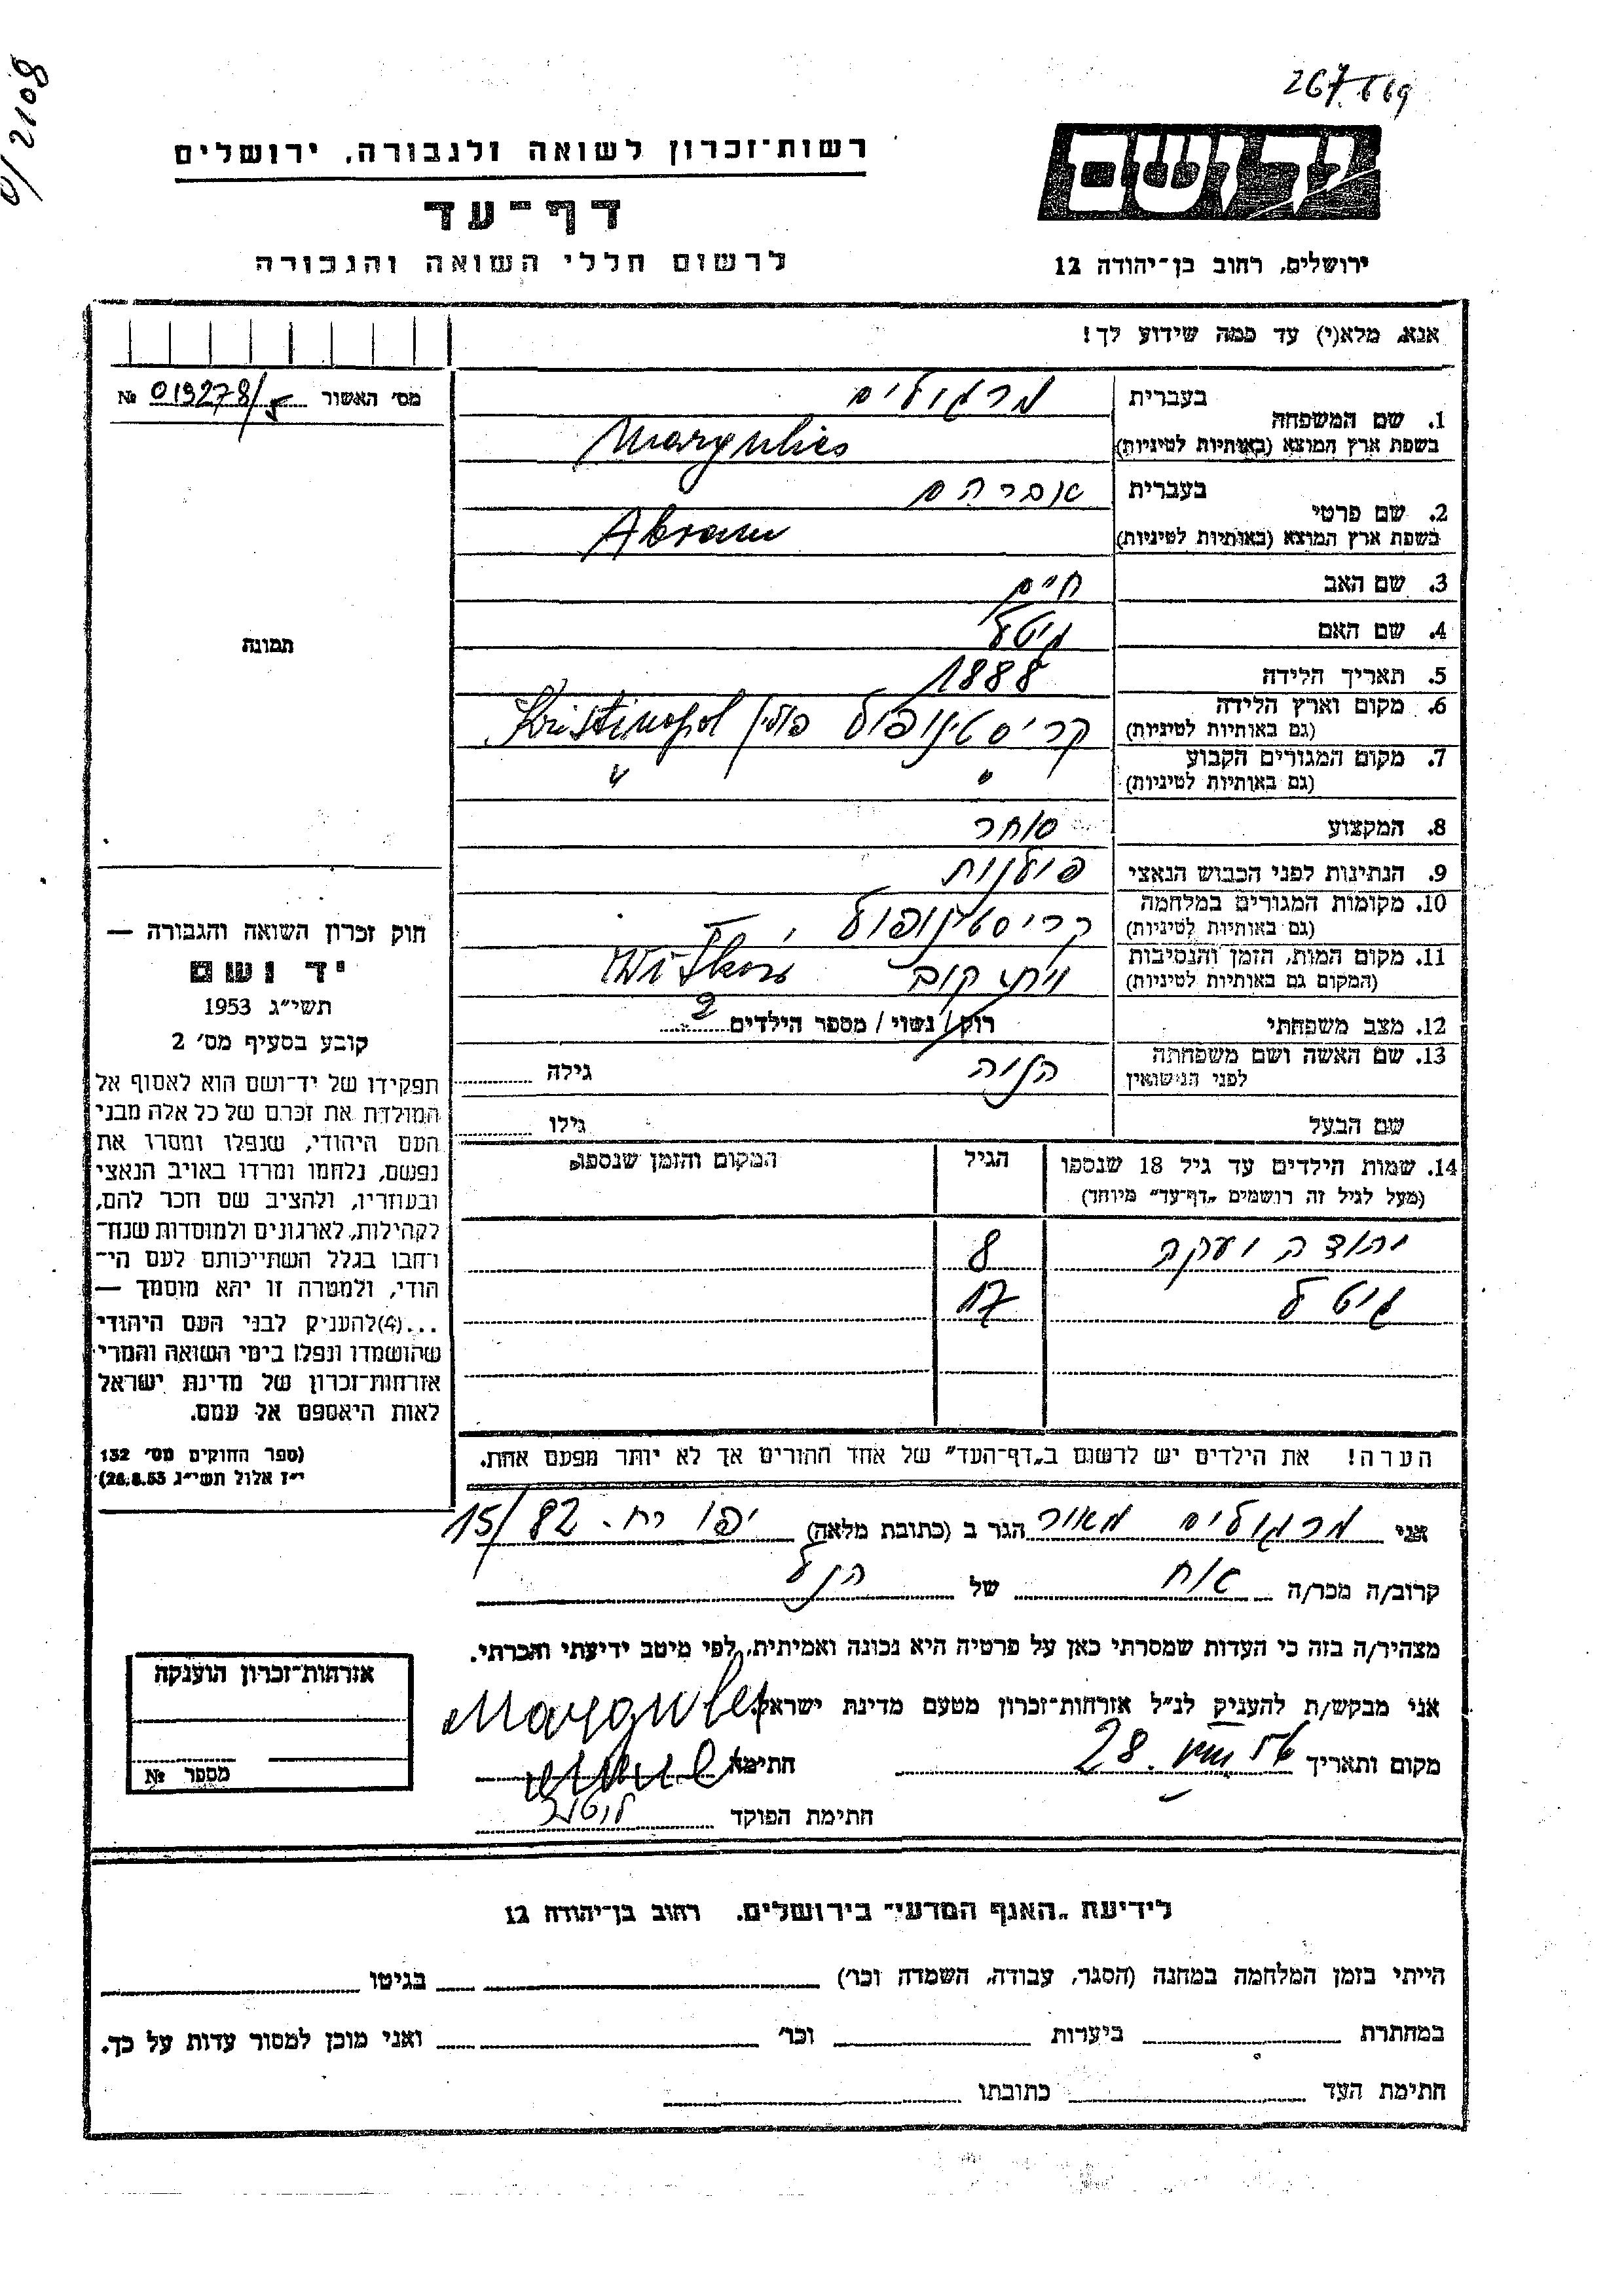 267669
0/2108
יד ושם
רשות־זכרון לשואה ולגבורה, ירושלים
דף־עד
ירושלים, רחוב בן־יהודה 12
לרשום חללי השואה והגבורה
אנא, מלא(י) עד כמה שידוע לך!
מס׳ האשור 019278/5 №
תמונה
1. שם המשפחה בעברית מרגוליס
בשפת ארץ המוצא (באותיות לטיניות) Margulies
2. שם פרטי בעברית אברהם
בשפת ארץ המוצא (באותיות לטיניות) Abram
3. שם האב חיים
4. שם האם גיטל
5. תאריך הלידה 1888
6. מקום וארץ הלידה (גם באותיות לטיניות) קריסטינופול פולין Kristinopol
7. מקום המגורים הקבוע (גם באותיות לטיניות) " "
8. המקצוע סוחר
9. הנתינות לפני הכבוש הנאצי פולנית
10. מקומות המגורים במלחמה (גם באותיות לטיניות) קריסטינופול
11. מקום המות, הזמן והנסיבות (המקום גם באותיות לטיניות) ויתקוב Witkow
12. מצב משפחתי רוק/ נשוי / מספר הילדים 2
13. שם האשה ושם משפחתה לפני הנישואין גילה
שם הבעל גילו
14. שמות הילדים עד גיל 18 שנספו הגיל המקום והזמן שנספו
(מעל לגיל זה רושמים „דף־עד״ מיוחד)
יהודה יעקב 8
גיטל 17
הערה! את הילדים יש לרשום ב„דף־העד״ של אחד ההורים אך לא יותר מפעם אחת.
חוק זכרון השואה והגבורה —
יד ושם
תשי״ג 1953
קובע בסעיף מס׳ 2
תפקידו של יד־ושם הוא לאסוף אל
המולדת את זכרם של כל אלה מבני
העם היהודי, שנפלו ומסרו את
נפשם, נלחמו ומרדו באויב הנאצי
ובעוזריו, ולהציב שם וזכר להם,
לקהילות, לארגונים ולמוסדות שנח־
רבו בגלל השתייכותם לעם הי־
הודי, ולמטרה זו יהא מוסמך —
...(4)להעניק לבני העם היהודי
שהושמדו ונפלו בימי השואה והמרי
אזרחות־זכרון של מדינת ישראל
לאות היאספם אל עמם.
(ספר החוקים מס׳ 132
י״ז אלול תשי״ג 26.8.53)
אני מרגוליס מאור הגר ב (כתובת מלאה) יפו רח. 82/15
קרוב/ה מכר/ה אח של הנ״ל
מצהיר/ה בזה כי העדות שמסרתי כאן על פרטיה היא נכונה ואמיתית, לפי מיטב ידיעתי והכרתי.
אני מבקש/ת להעניק לנ״ל אזרחות־זכרון מטעם מדינת ישראל.
Margulies
מקום ותאריך 28. חתימה
חתימת הפוקד
אזרחות־זכרון הוענקה
מספר №
לידיעת „האגף המדעי״ בירושלים. רחוב בן־יהודה 12
הייתי בזמן המלחמה במחנה (הסגר, עבודה, השמדה וכו׳) בגיטו
במחתרת ביערות וכו׳ ואני מוכן למסור עדות על כך.
חתימת העד כתובתו